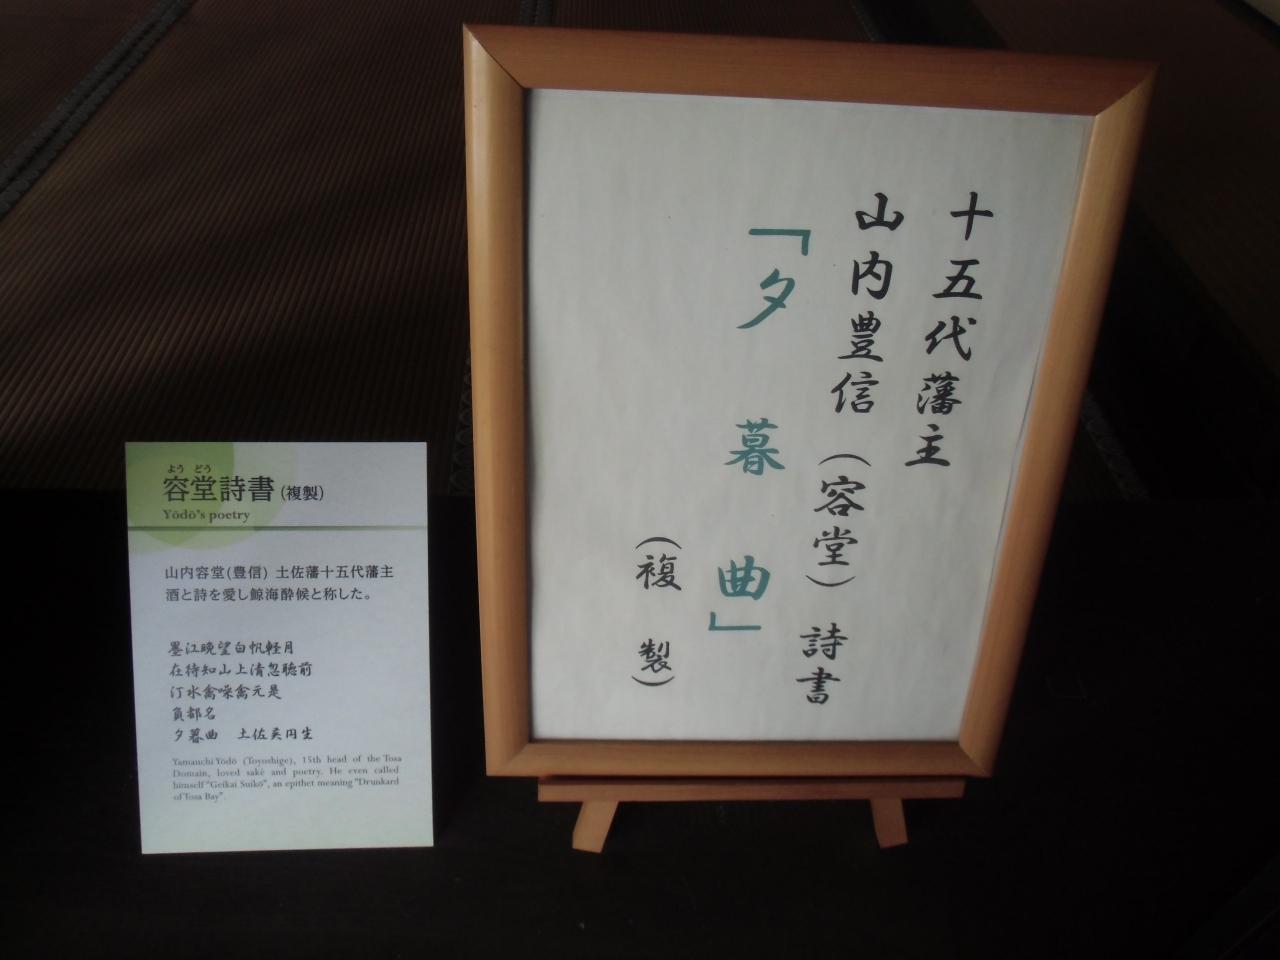 十五代藩主
山内豊信（容堂）詩書
「夕暮曲」
（複製）
よう どう
容堂詩書(複製)
Yōdō's poetry
山内容堂(豊信) 土佐藩十五代藩主
酒と詩を愛し鯨海酔候と称した。
墨江晩望白帆軽月
在待知山上清忽聴前
汀水禽噪禽元是
負都名
夕暮曲 土佐美円生
Yamauchi Yōdō (Toyoshige), 15th head of the Tosa
Domain, loved saké and poetry. He even called
himself "Geikai Suikō", an epithet meaning "Drunkard
of Tosa Bay".